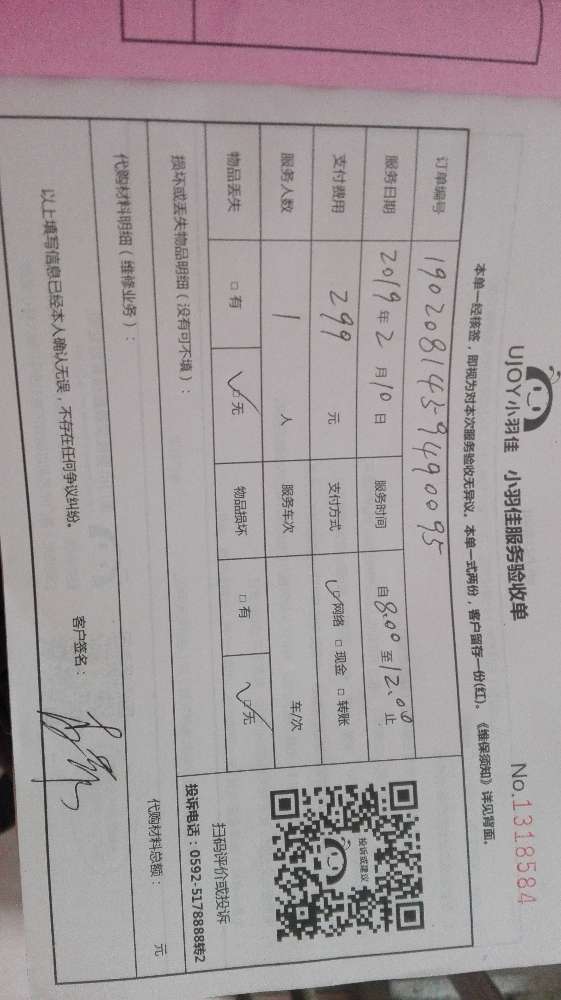 UJOY小羽佳 小羽佳服务验收单
No.1318584
本单一经核签，即视为对本次服务验收无异议。本单一式两份，客户留存一份(红)。《维保须知》详见背面。
订单编号 19020814594490095
服务日期 2019年2月10日 服务时间 自8:00至12:00止
支付费用 299 元 支付方式 ☑网络 □现金 □转账
服务人数 1 人 服务车次 车/次
物品丢失 □有 ☑无 物品损坏 □有 ☑无
投诉或建议
扫码评价或投诉
投诉电话：0592-5178888转2
损坏或丢失物品明细（没有可不填）：
代购材料明细（维修业务）： 代购材料总额： 元
以上填写信息已经本人确认无误，不存在任何争议纠纷。 客户签名：